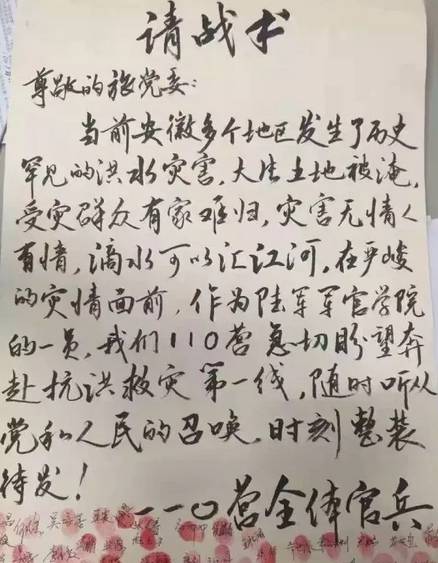 请战术
尊敬的旅党委：
当前安徽多个地区发生了历史
罕见的洪水灾害，大片土地被淹，
受灾群众有家难归，灾害无情人
有情，滴水可以汇江河，在严峻
的灾情面前，作为陆军军官学院
的一员，我们110营急切盼望奔
赴抗洪救灾第一线，随时听从
党和人民的召唤，时刻整装
待发！
一一〇营全体官兵